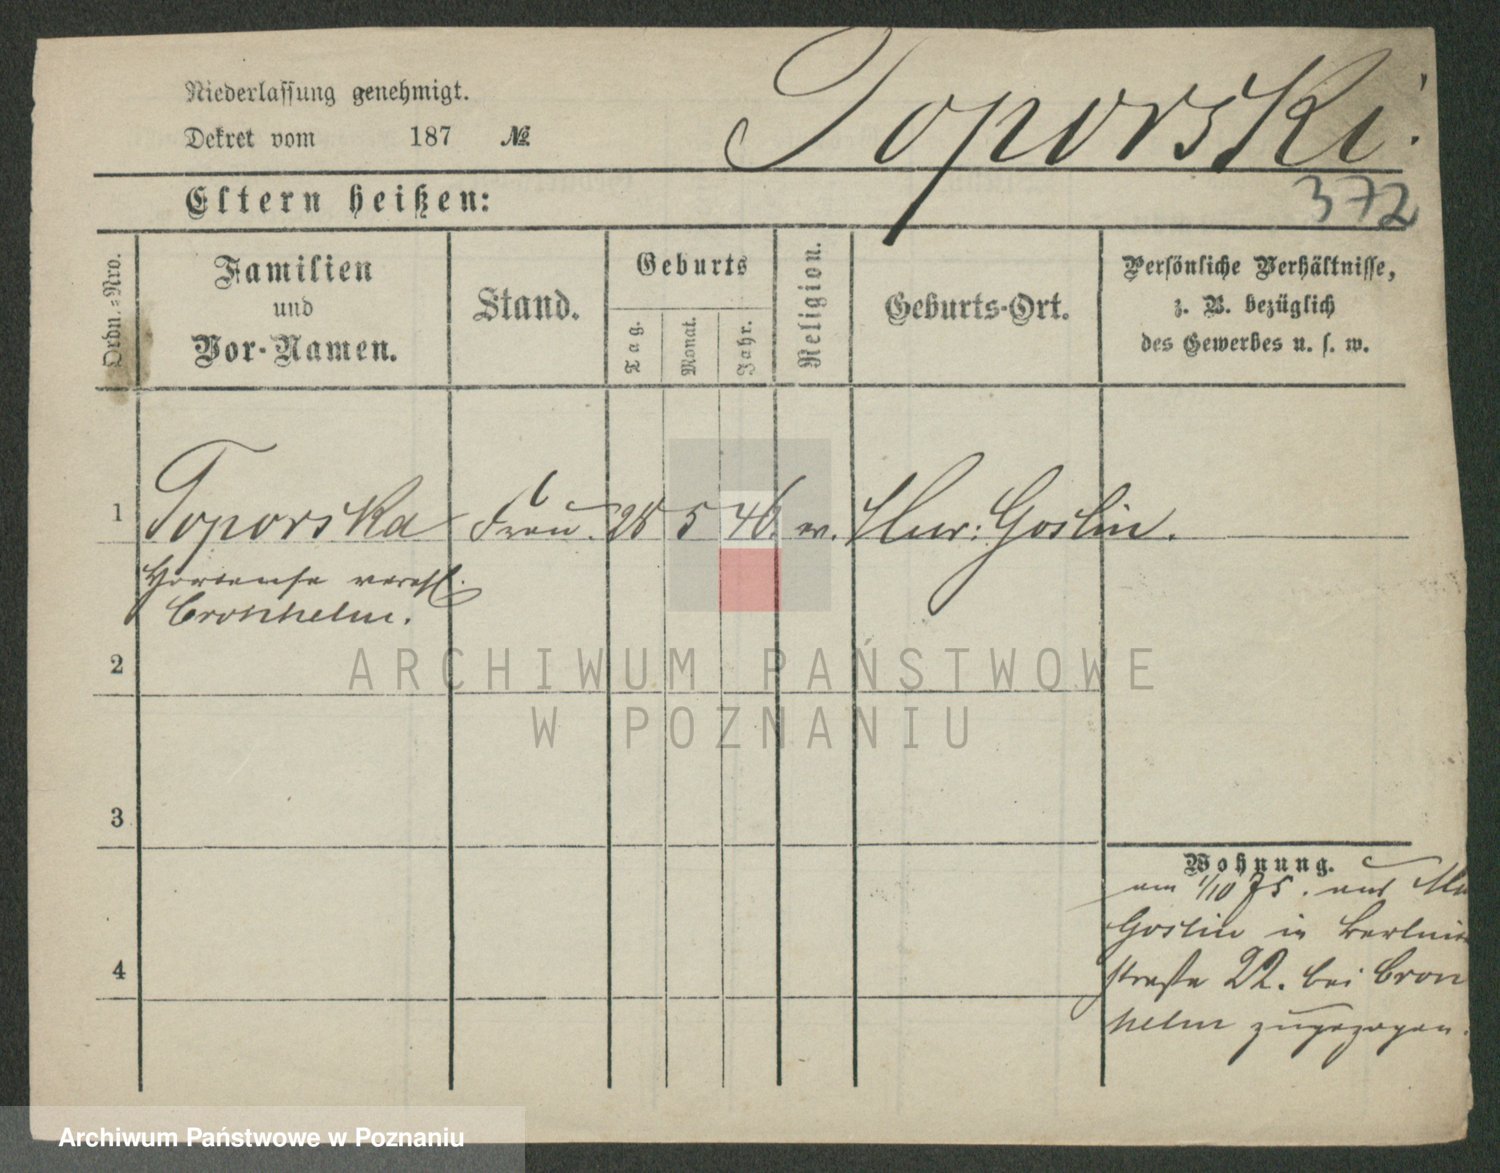 Niederlassung genehmigt.
Dekret vom 187 №
Toporski.
372
Eltern heißen:
Ordn.-Nro.
Familien
und
Vor-Namen.
Stand.
Geburts
Tag.
Monat.
Jahr.
Religion.
Geburts-Ort.
Persönliche Verhältnisse,
z. B. bezüglich
des Gewerbes u. s. w.
1 Toporska Frau. 28 5 46. Mur: Goslin.
Hortense verehl.
Cronhelm.
2
3
4
Wohnung.
am 1/10 75. aus Mu
Goslin in Berliner
straße 22. bei Cron
helm zugezogen.
ARCHIWUM PAŃSTWOWE
W POZNANIU
Archiwum Państwowe w Poznaniu